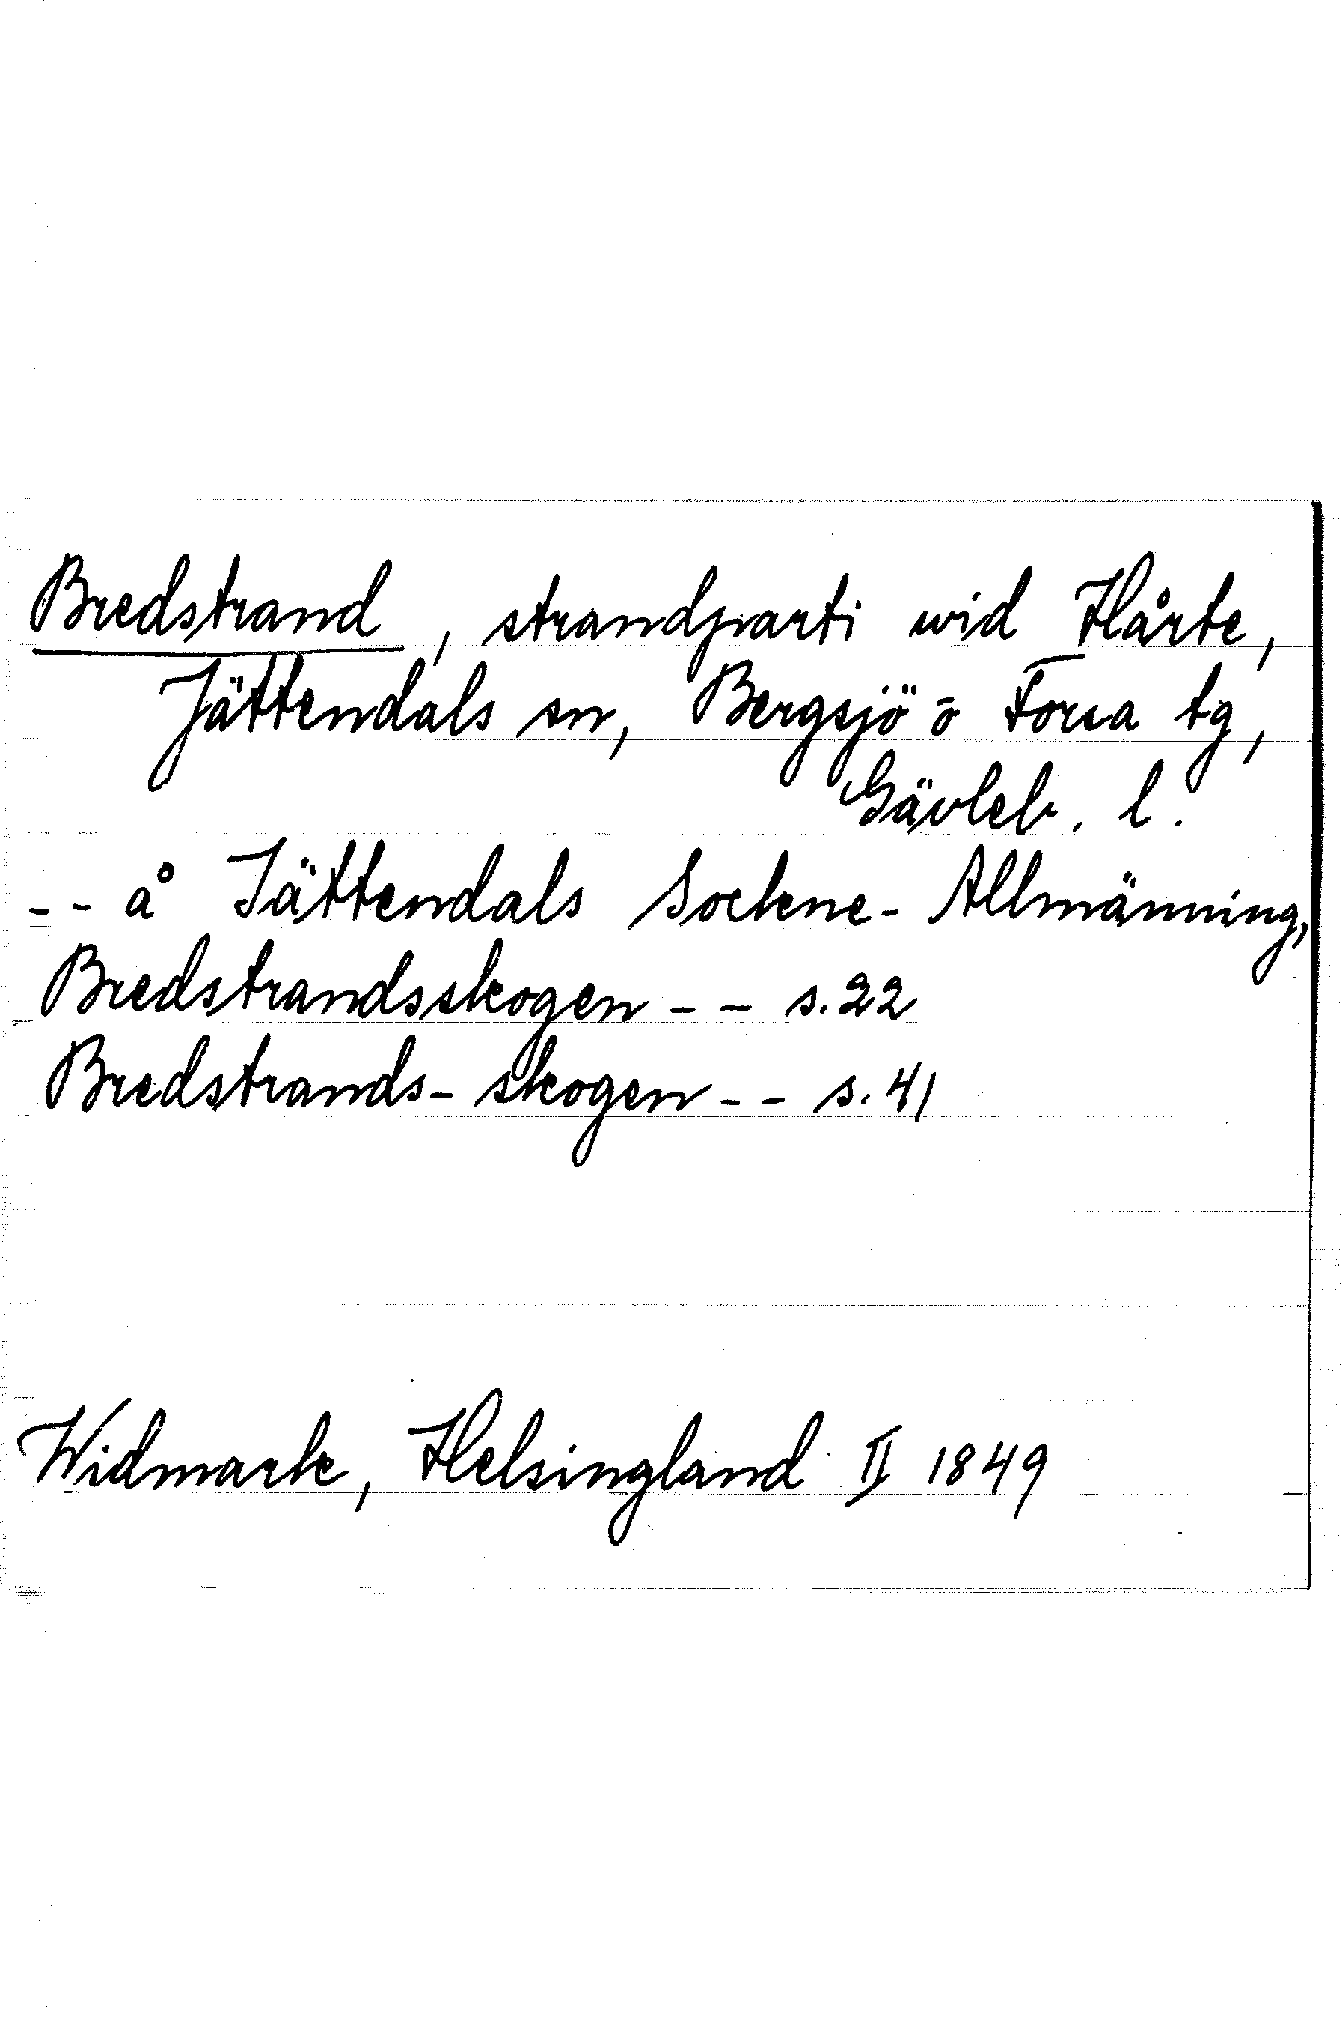 Bredstrand, strandparti vid Hårte,
Jättendals sn, Bergsjö o Forsa tg,
Gävleb. l.
-- å Jättendals Sockne- Allmänning,
Bredstrandsskogen -- s. 22
Bredstrands- skogen -- s. 41
Widmark, Helsingland II 1849